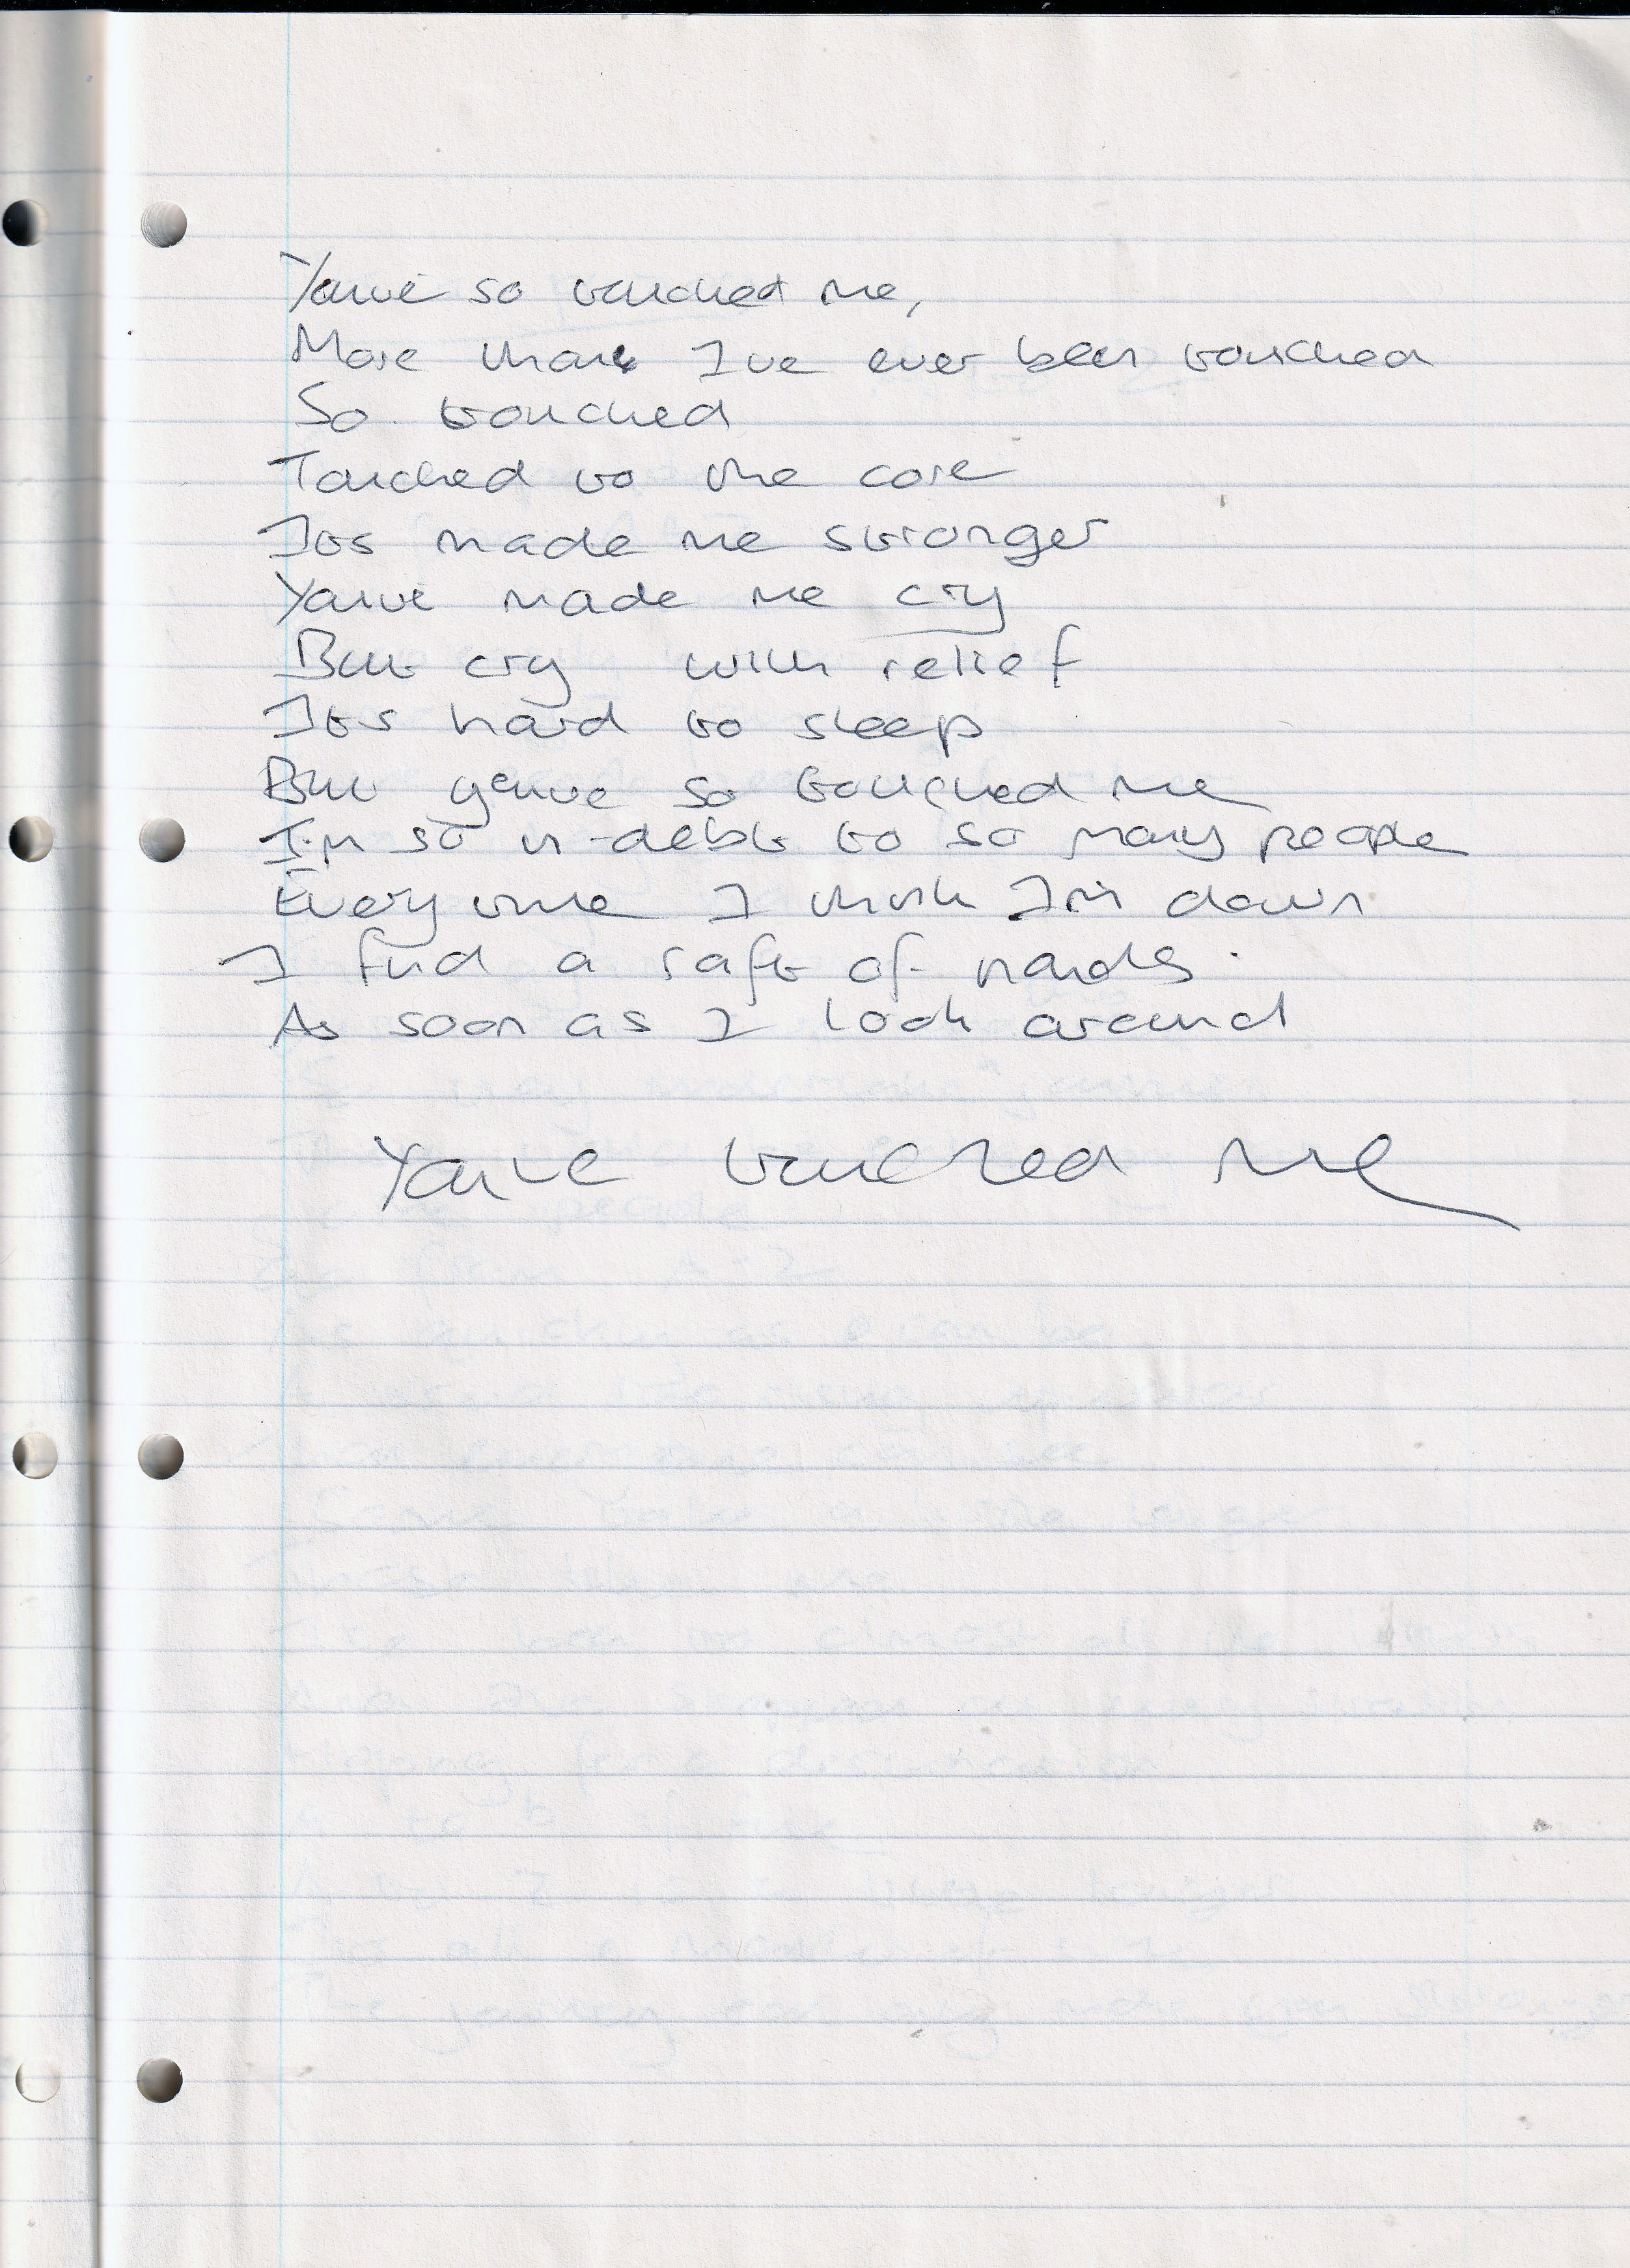 You've so touched me,
More than I've ever been touched
So touched
Touched to the core
Its made me stronger
You've made me cry
But cry with relief
Its hard to sleep
But you've so touched me
I'm so in-debt to so many people
Every time I think I'm down
I find a safe of hands.
As soon as I look around
You've touched me